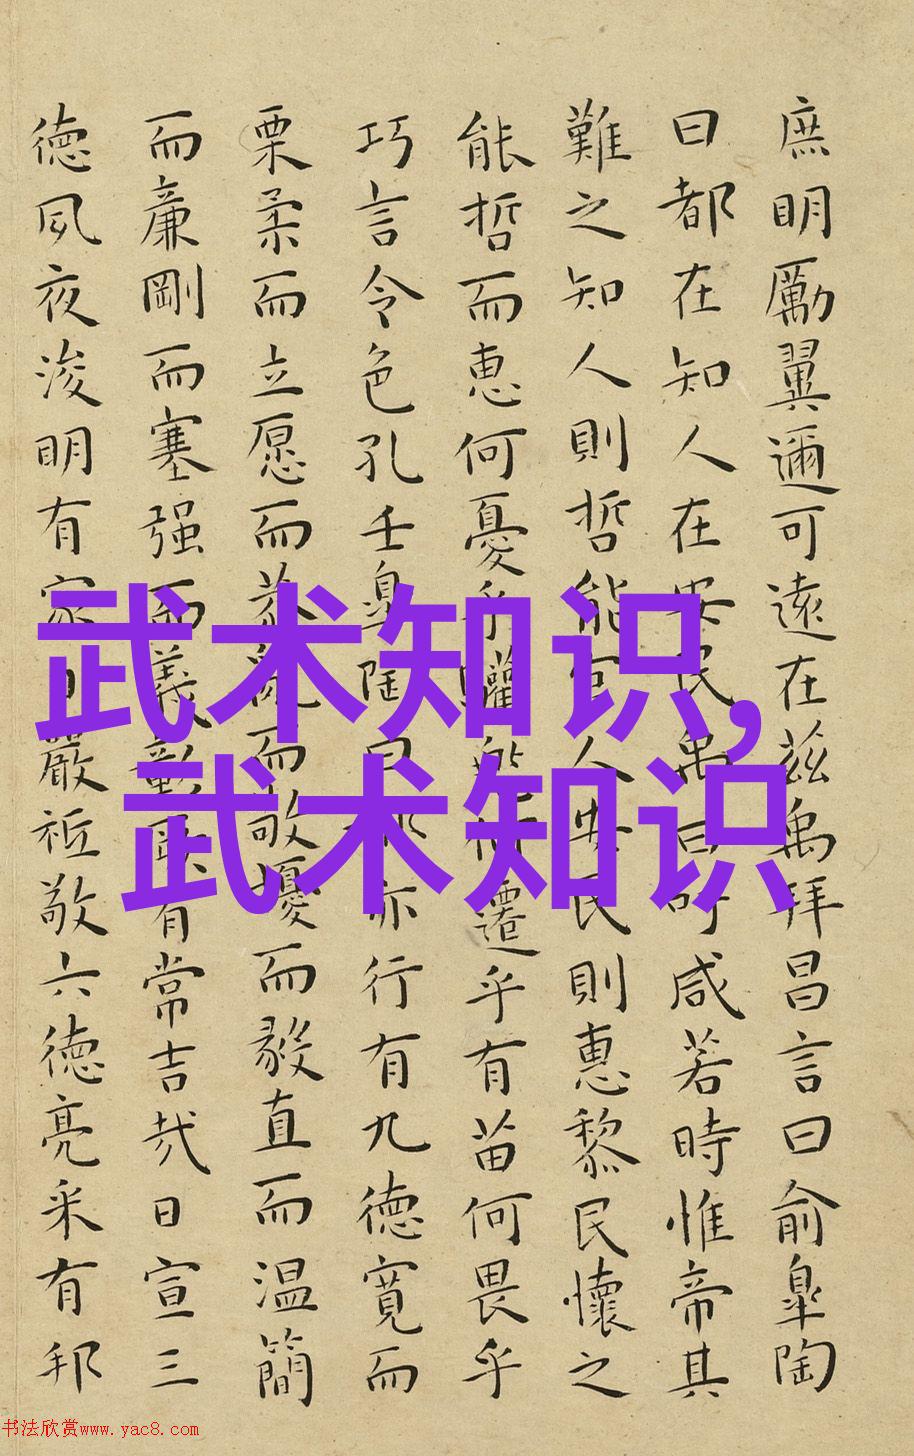 庶明勵翼邇可遠在兹禹拜昌言曰俞皐陶
曰都在知人在安民禹曰吁咸若時惟帝其
難之知人則哲能官人安民則惠黎民懷之
能哲而惠何憂乎驩兜何遷乎有苗何畏乎
巧言令色孔壬皐陶曰都亦行有九德寬而
栗柔而立愿而恭亂而敬擾而毅直而温簡
而廉剛而塞强而義彰厥有常吉哉日宣三
德夙夜浚明有家日嚴祗敬六德亮采有邦
武术知识,
武术知识
书法欣赏www.yac8.com